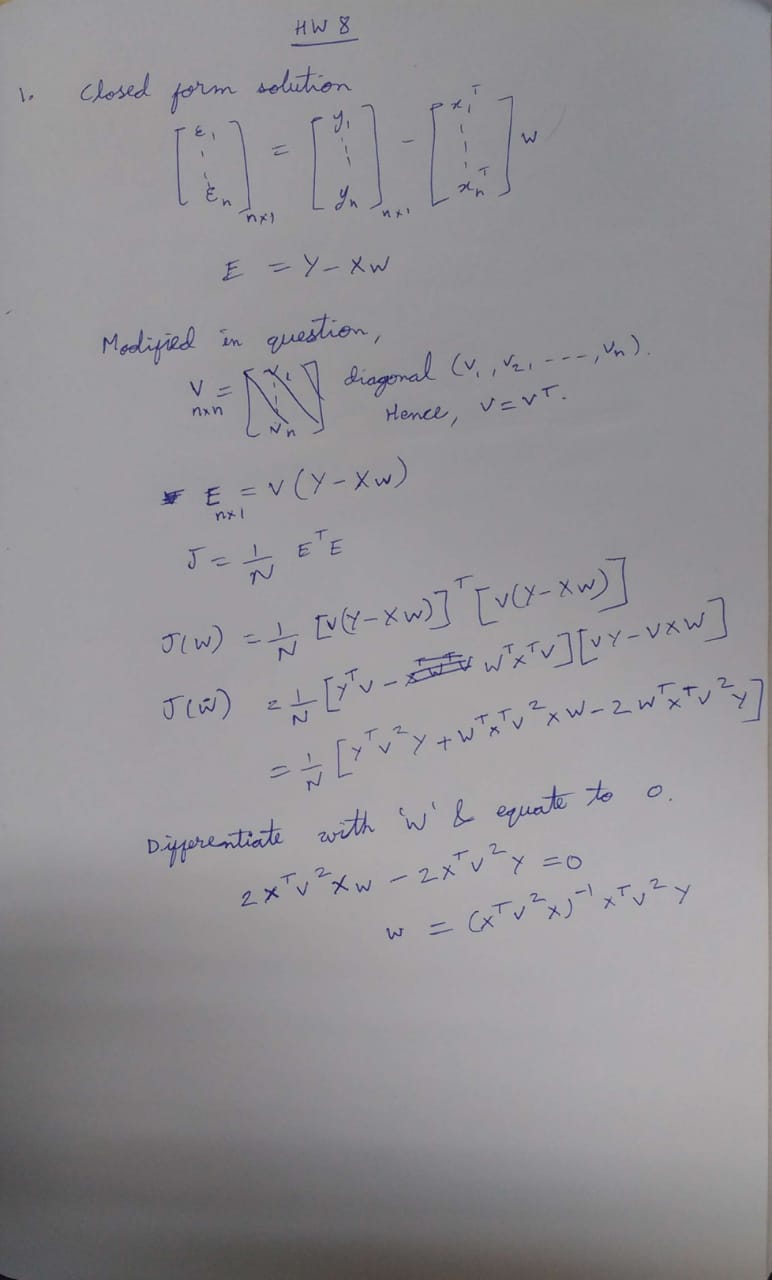 HW 8
1. Closed form solution
[ε₁ ¦ εₙ]ₙₓ₁ = [y₁ ¦ yₙ]ₙₓ₁ - [x₁ᵀ ¦ xₙᵀ] w
E = Y - Xw
Modified in question,
V n×n = [v₁ ¦ vₙ] diagonal (v₁, v₂, ---, vₙ).
Hence, V = Vᵀ.
E n×1 = V(Y - Xw)
J = 1/N EᵀE
J(w) = 1/N [V(Y - Xw)]ᵀ [V(Y - Xw)]
J(w̄) = 1/N [YᵀV - WᵀXᵀV][VY - VXW]
= 1/N [YᵀV²Y + WᵀXᵀV²XW - 2WᵀXᵀV²Y]
Differentiate with 'w' & equate to 0.
2XᵀV²Xw - 2XᵀV²Y = 0
w = (XᵀV²X)⁻¹ XᵀV²Y